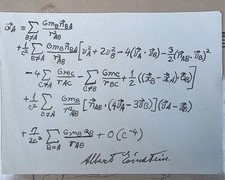 a⃗_A = Σ_{B≠A} Gm_B n⃗_BA / r²_AB
+ 1/c² Σ_{B≠A} Gm_B n⃗_BA / r²_AB [v²_A + 2v²_B − 4(v⃗_A·v⃗_B) − 3/2 (n⃗_AB·v⃗_B)²
− 4 Σ_{C≠A} Gm_C / r_AC − Σ_{C≠B} Gm_C / r_BC + 1/2 ((x⃗_B − x⃗_A)·a⃗_B)]
+ 1/c² Σ_{B≠A} Gm_B / r²_AB [n⃗_AB·(4v⃗_A − 3v⃗_B)](v⃗_A − v⃗_B)
+ 7/2c² Σ_{B≠A} Gm_B a⃗_B / r_AB + O(c⁻⁴)
Albert Einstein